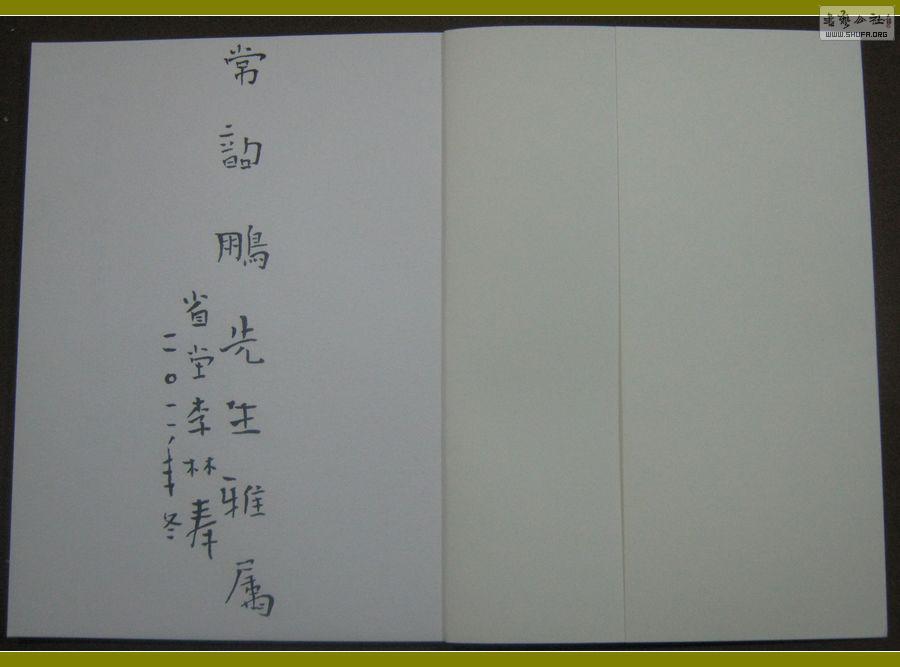 常韵鵬先生雅属
省堂李林奉
二〇一一年冬
書藝公社
WWW.SHUFA.ORG